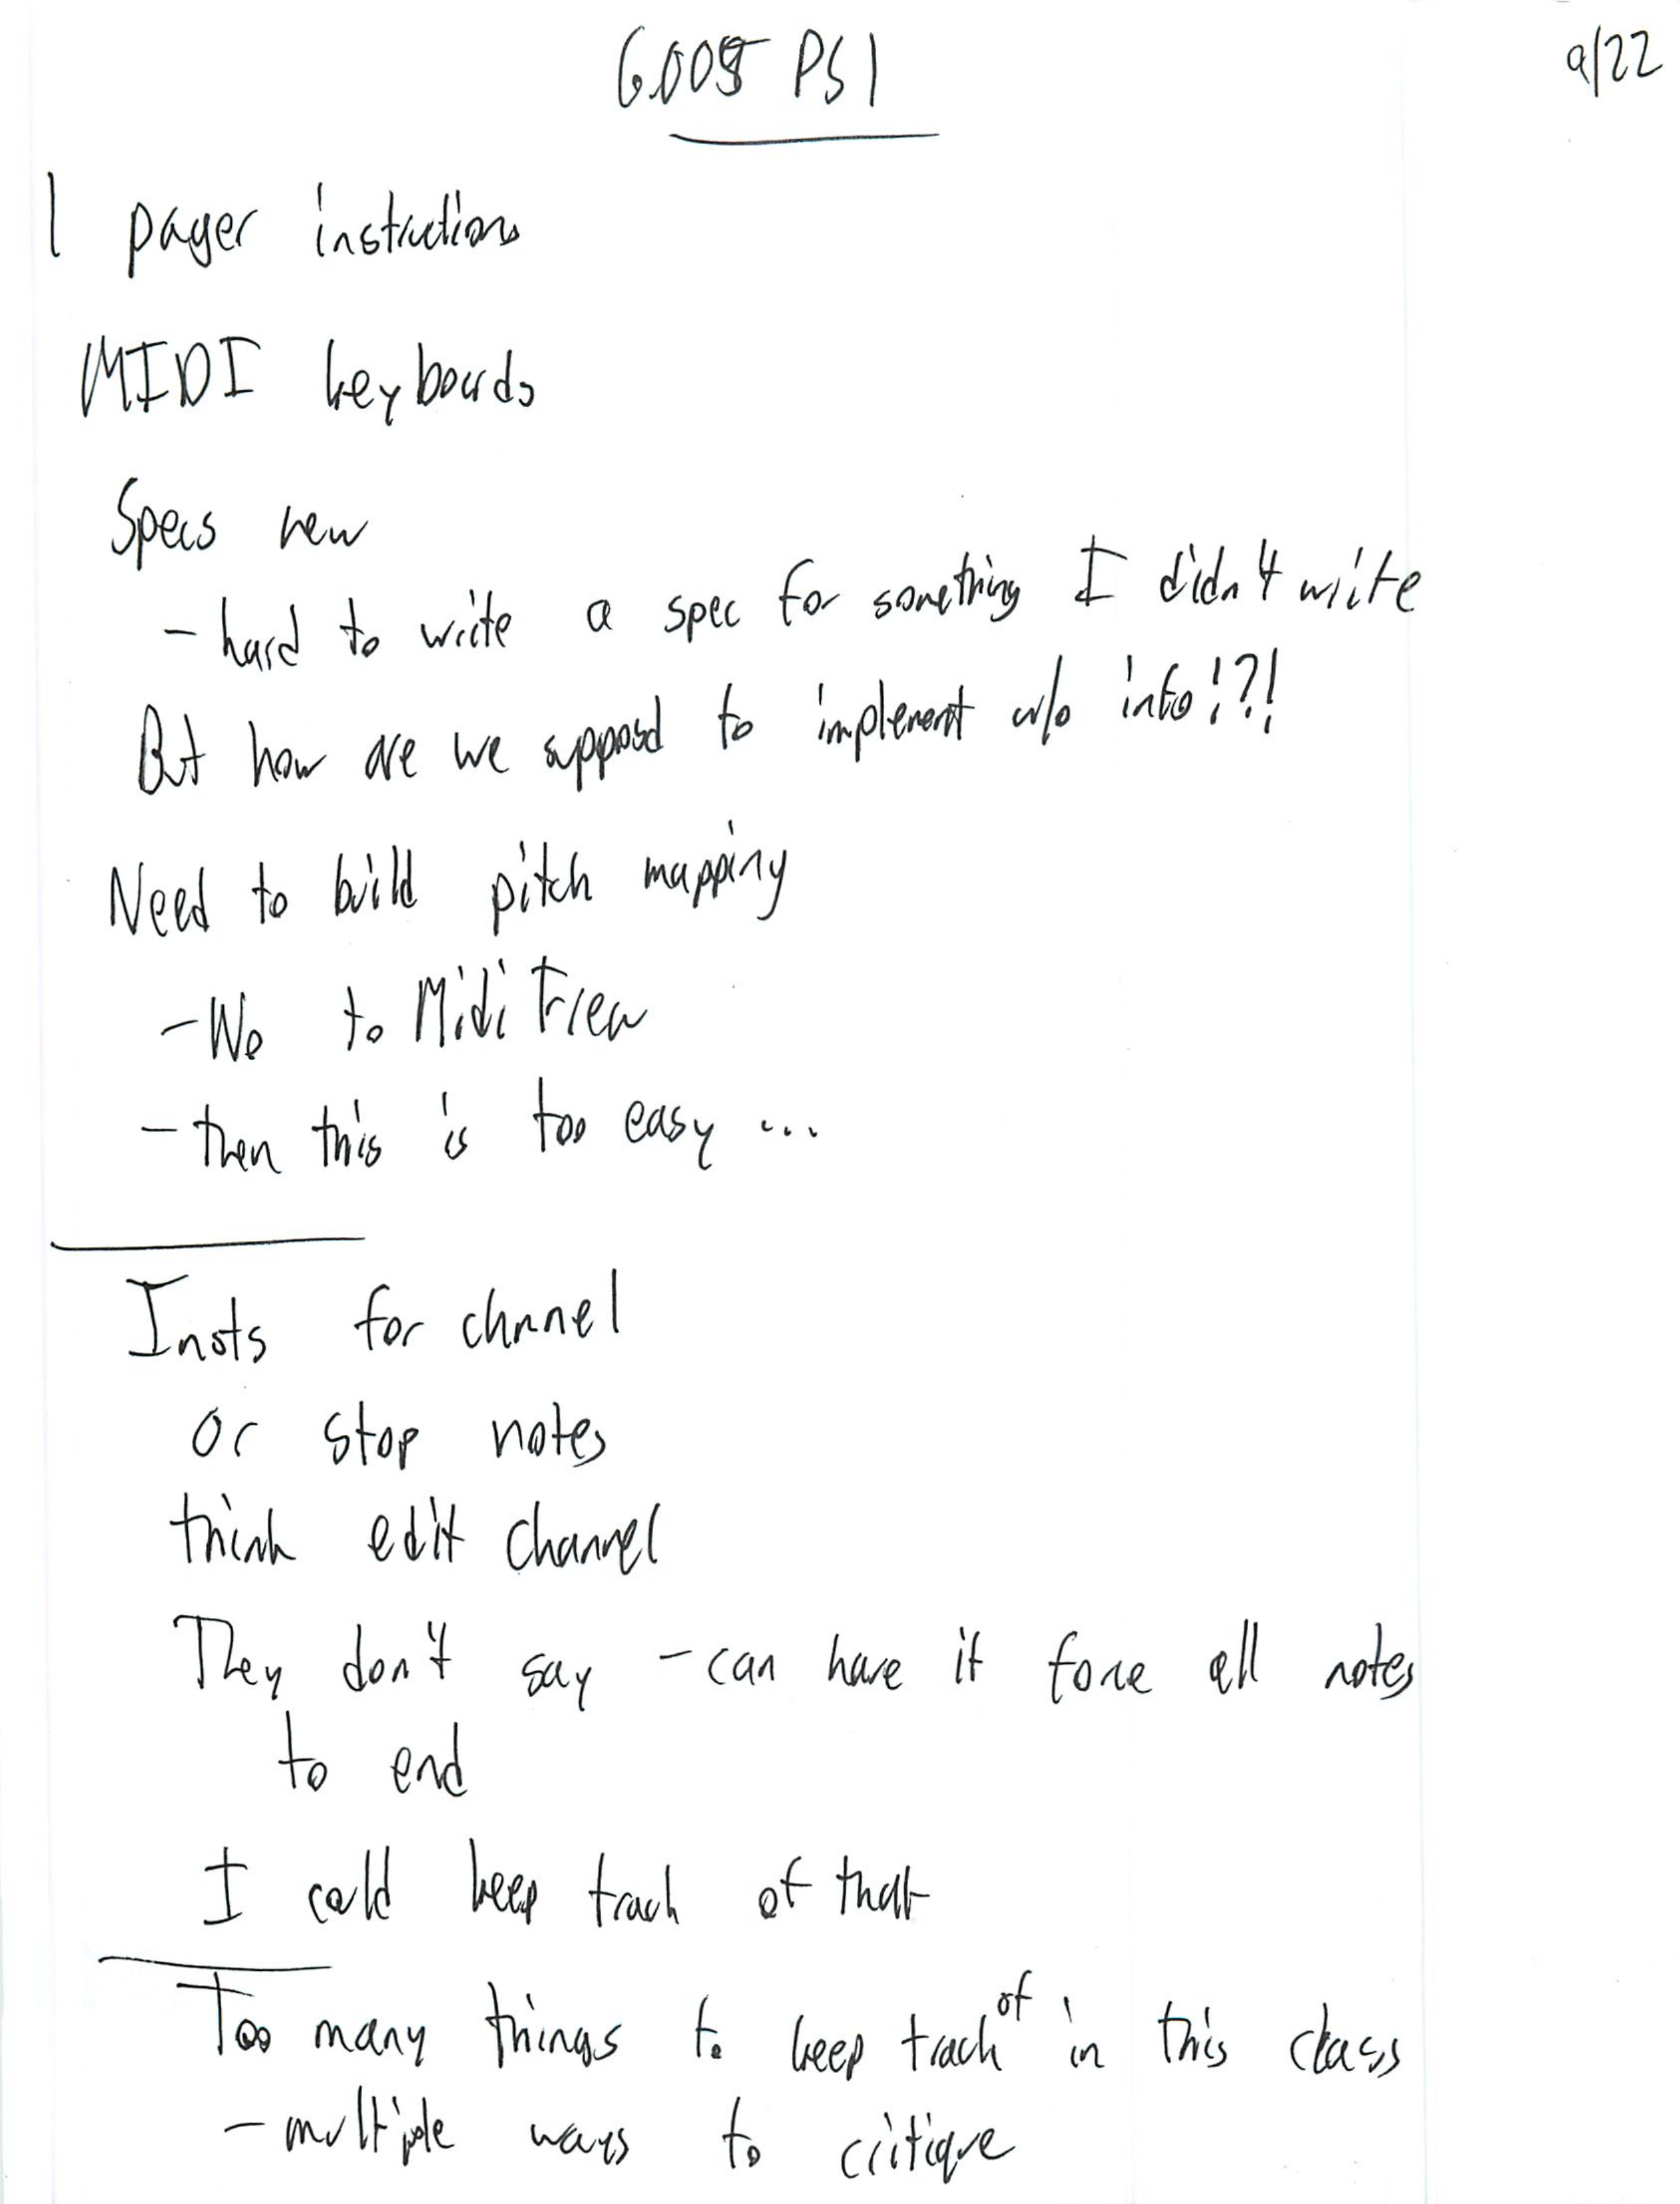 6.005 PS1
9/22
1 pager instructions
MIDI keyboards
Specs new
- hard to write a spec for something I didn't write
But how are we supposed to implement w/o info!?!
Need to build pitch mapping
- No to Midi
- then this is too easy ...
Insts for channel
or stop notes
think edit channel
They don't say - can have it force all notes
to end
I could keep track of that
Too many things to keep track of in this class
- multiple ways to critique